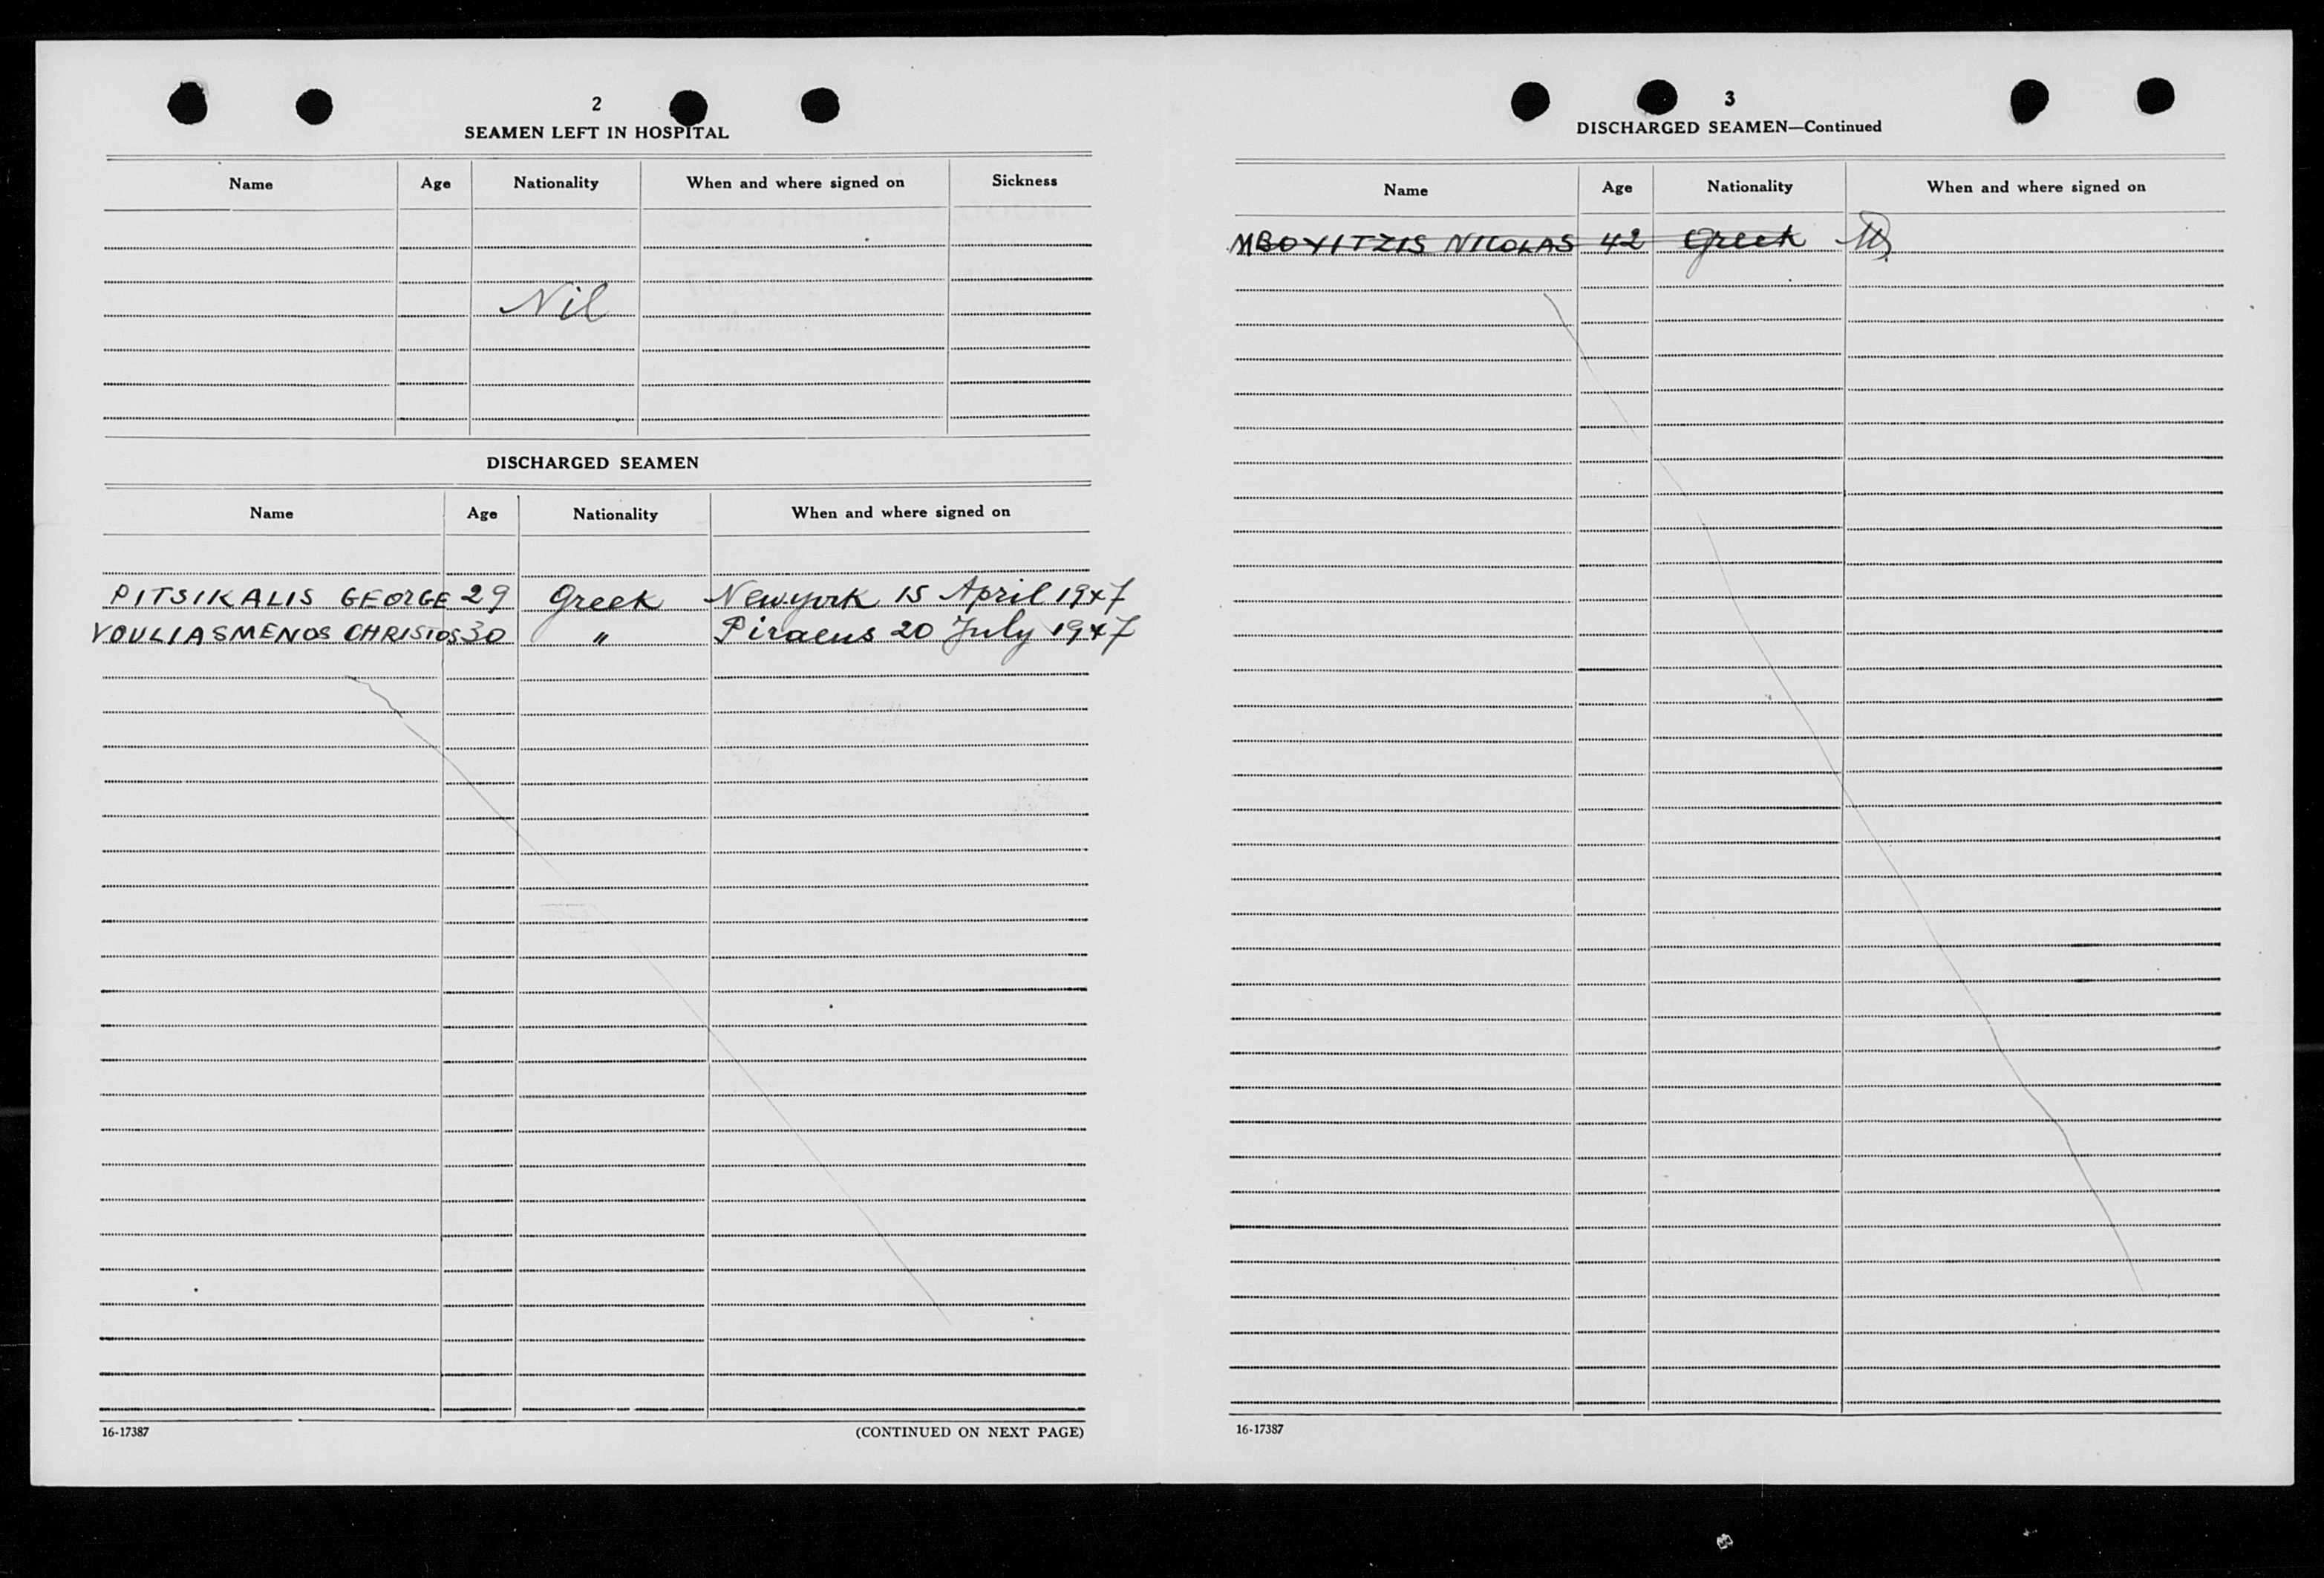 2
SEAMEN LEFT IN HOSPITAL
Name Age Nationality When and where signed on Sickness
Nil
DISCHARGED SEAMEN
Name Age Nationality When and where signed on
PITSIKALIS GEORGE 29 Greek Newyork 15 April 1947
VOULIASMENOS CHRISTOS 30 " Piraeus 20 July 1947
16-17387 (CONTINUED ON NEXT PAGE)
3
DISCHARGED SEAMEN—Continued
Name Age Nationality When and where signed on
MBOYITZIS NICOLAS 42 Greek
16-17387